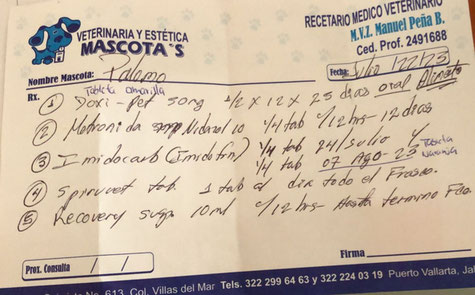 VETERINARIA Y ESTÉTICA
MASCOTA´S
RECETARIO MEDICO VETERINARIO
M.V.Z. Manuel Peña B.
Ced. Prof. 2491688
Nombre Mascota: Palomo
Fecha: Julio /22/23
Rx. Tableta amarilla
① Doxi-Pet 50mg 1/2 x 12 x 25 dias oral
② Metronida Nidazol 1/4 tab c/12 hrs- 12 dias
③ Imidocarb (Imidofin) 1/4 tab 24/Julio y
1/4 tab 07 Ago-23 Tableta Naranja
④ tab. 1 tab al dia todo el Frasco.
⑤ Recovery 10ml c/12 hrs- Hasta termino Fco.
Prox. Consulta / /
Firma
No. 613, Col. Villas del Mar Tels. 322 299 64 63 y 322 224 03 19 Puerto Vallarta, Jal